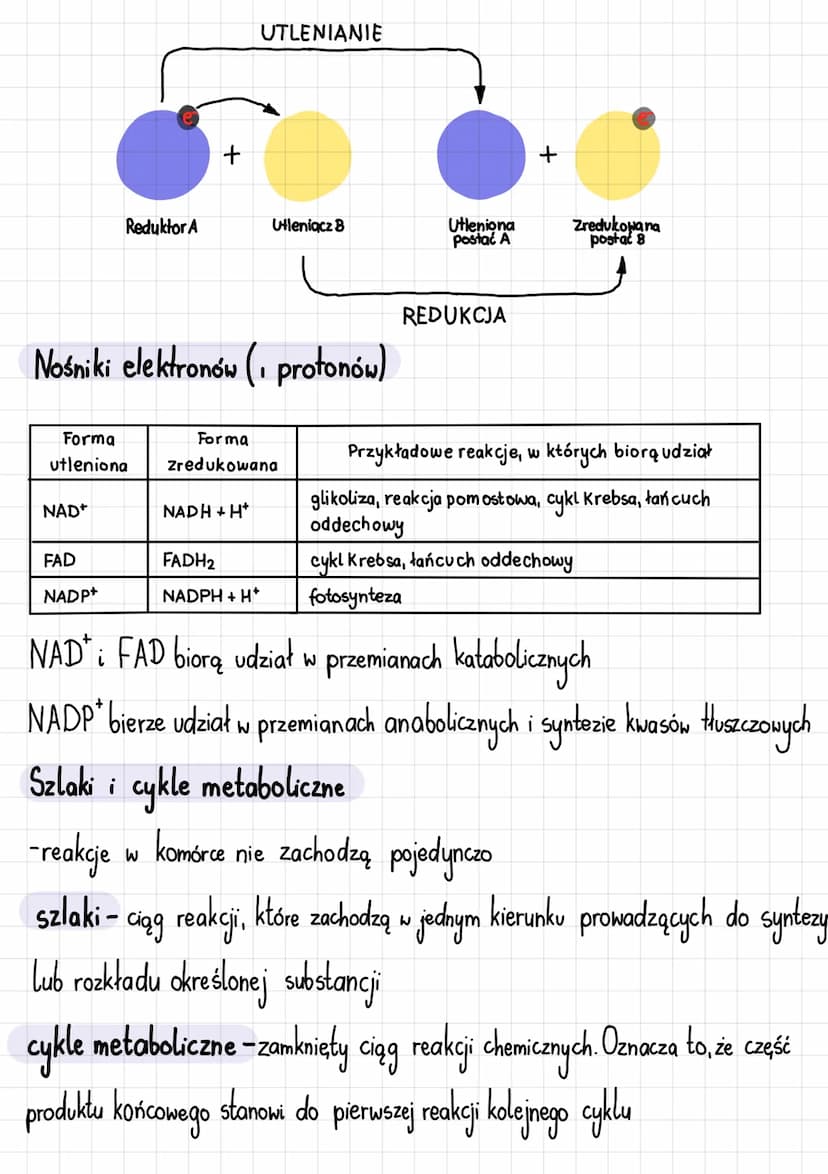 UTLENIANIE
e⁻ e⁻
+ +
Reduktor A Utleniacz B Utleniona postać A Zredukowana postać B
REDUKCJA
Nośniki elektronów (i protonów)
Forma utleniona Forma zredukowana Przykładowe reakcje, w których biorą udział
NAD⁺ NADH + H⁺ glikoliza, reakcja pomostowa, cykl Krebsa, łańcuch
oddechowy
FAD FADH₂ cykl Krebsa, łańcuch oddechowy
NADP⁺ NADPH + H⁺ fotosynteza
NAD⁺ i FAD biorą udział w przemianach katabolicznych
NADP⁺ bierze udział w przemianach anabolicznych i syntezie kwasów tłuszczowych
Szlaki i cykle metaboliczne
-reakcje w komórce nie zachodzą pojedynczo
szlaki - ciąg reakcji, które zachodzą w jednym kierunku prowadzących do syntezy
lub rozkładu określonej substancji
cykle metaboliczne - zamknięty ciąg reakcji chemicznych. Oznacza to, że część
produktu końcowego stanowi do pierwszej reakcji kolejnego cyklu